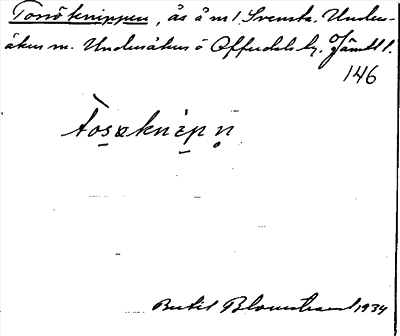 Torsöknippen, ås å m l. Svensta. Under-
åkers sn. Undersåkers o Offerdals tg. Jämtl l.
146
tòsəknìpn̥
Bertil Blomstrand 1934